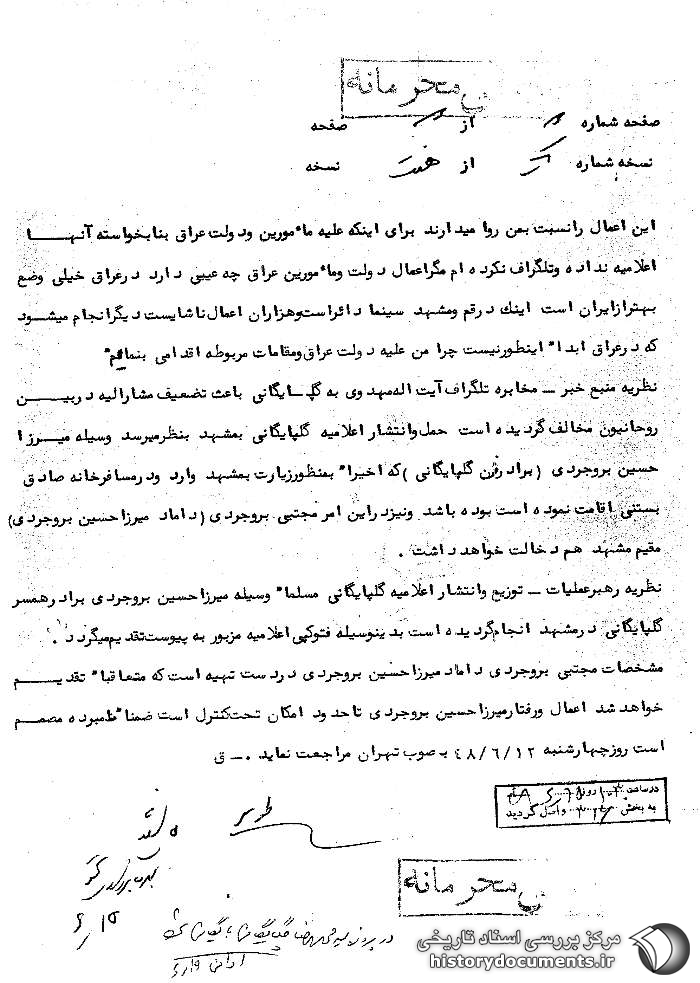 محرمانه
صفحه شماره از صفحه
نسخه شماره یک از هفت نسخه
این اعمال رانسبت بمن روا میدارند برای اینکه علیه مأمورین ودولت عراق بنابخواسته آنهـــا
اعلامیه نداده وتلگراف نکرده ام مگراعمال دولت ومأمورین عراق چه عیبی دارد درعراق خیلی وضع
بهترازایران است اینك درقم ومشهد سینما دائراست وهزاران اعمال ناشایست دیگرانجام میشود
که درعراق ابدا" اینطورنیست چرا من علیه دولت عراق ومقامات مربوطه اقدامی بنمائیم"
نظریه منبع خبر ــ مخابره تلگراف آیت اله مهدوی به گلپـایگانی باعث تضعیف مشارالیه دربیـــن
روحانیون مخالف گردیده است حمل وانتشار اعلامیه گلپایگانی بمشهد بنظرمیرسد وسیله میـرزا
حسین بروجردی (برادرزن گلپایگانی) که اخیرا" بمنظورزیارت بمشهد وارد ودرمسافرخانه صادق
بستنی اقامت نموده است بوده باشد ونیزدراین امر مجتبی بروجردی (داماد میرزاحسین بروجردی)
مقیم مشهد هم دخالت خواهد داشت .
نظریه رهبرعملیات ــ توزیع وانتشار اعلامیه گلپایگانی مسلما" وسیله میرزاحسین بروجردی برادرهمسر
گلپایگانی درمشهد انجام گردیده است بدینوسیله فتوکپی اعلامیه مزبور به پیوست تقدیم میگردد .
مشخصات مجتبی بروجردی داماد میرزاحسین بروجردی دردست تهیه است که متعاقبا" تقدیـــم
خواهد شد اعمال ورفتارمیرزاحسین بروجردی تاحدود امکان تحت کنترل است ضمنا" نامبرده مصمم
است روزچهارشنبه ۴۸/۶/۱۲ بصوب تهران مراجعت نماید .ــ ق
درساعت روز
به بخش واصل گردید
محرمانه
در پرونده سید محمدرضا گلپایگانی
مرکز بررسی اسناد تاریخی
historydocuments.ir